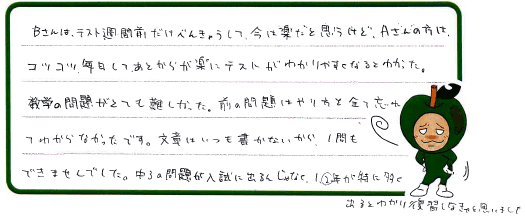 Bさんは、テスト週間前だけべんきょうして、今は楽だと思うけど、Aさんの方は、
コツコツ、毎日して、あとからが楽にテストがわかりやすくなるとわかった。
数学の問題がとても難しかった。前の問題はやり方を全て忘れ
てわからなかったです。文章はいつも書かないから、1問も
できませんでした。中3の問題が入試に出るんじゃなく、1、2年が特に多く
出るとわかり復習しなきゃと思いました